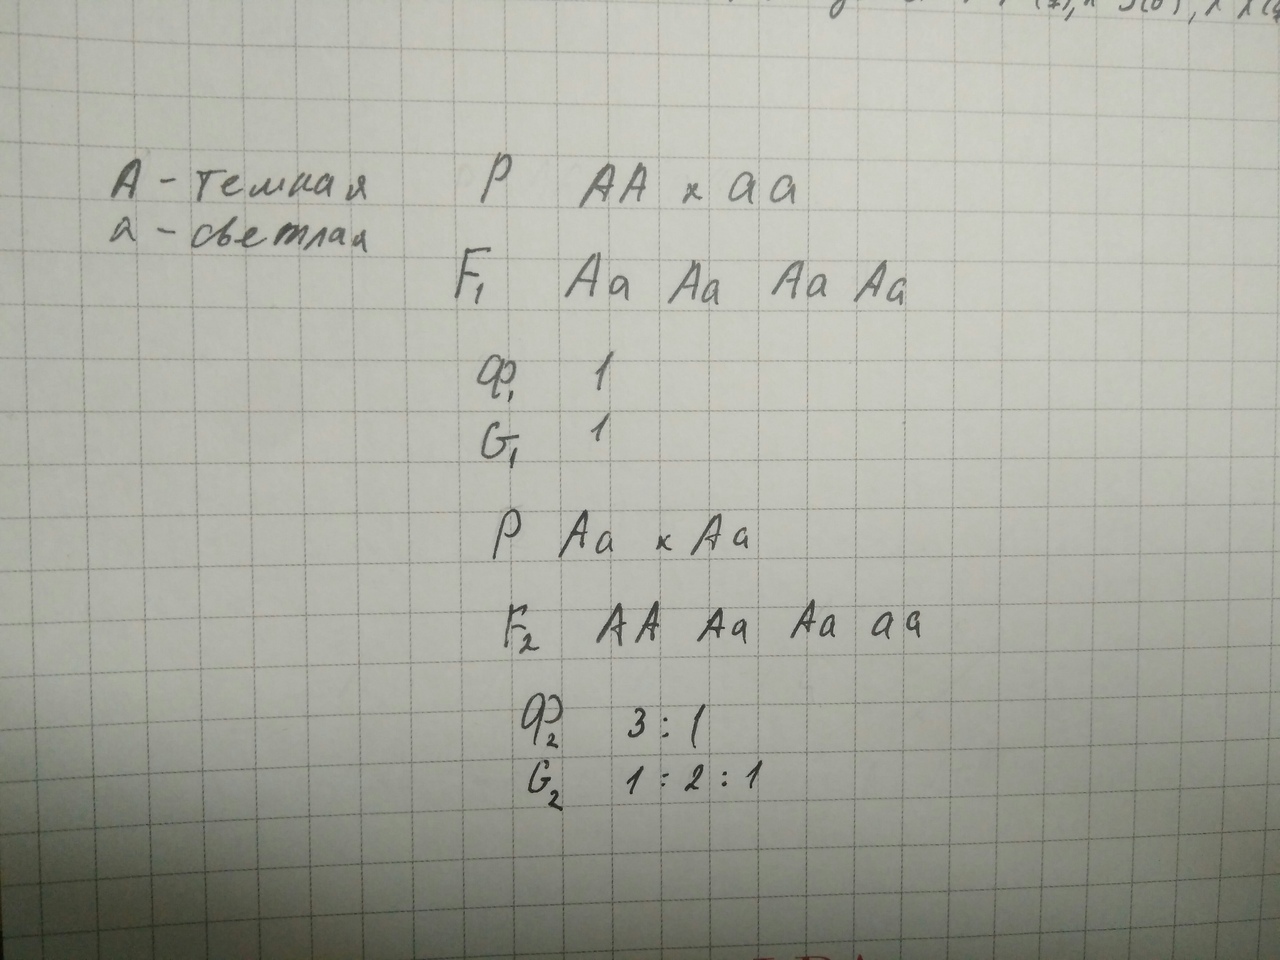 А - темная
а - светлая
P AA x aa
F1 Aa Aa Aa Aa
Ф1 1
G1 1
P Aa x Aa
F2 AA Aa Aa aa
Ф2 3 : 1
G2 1 : 2 : 1